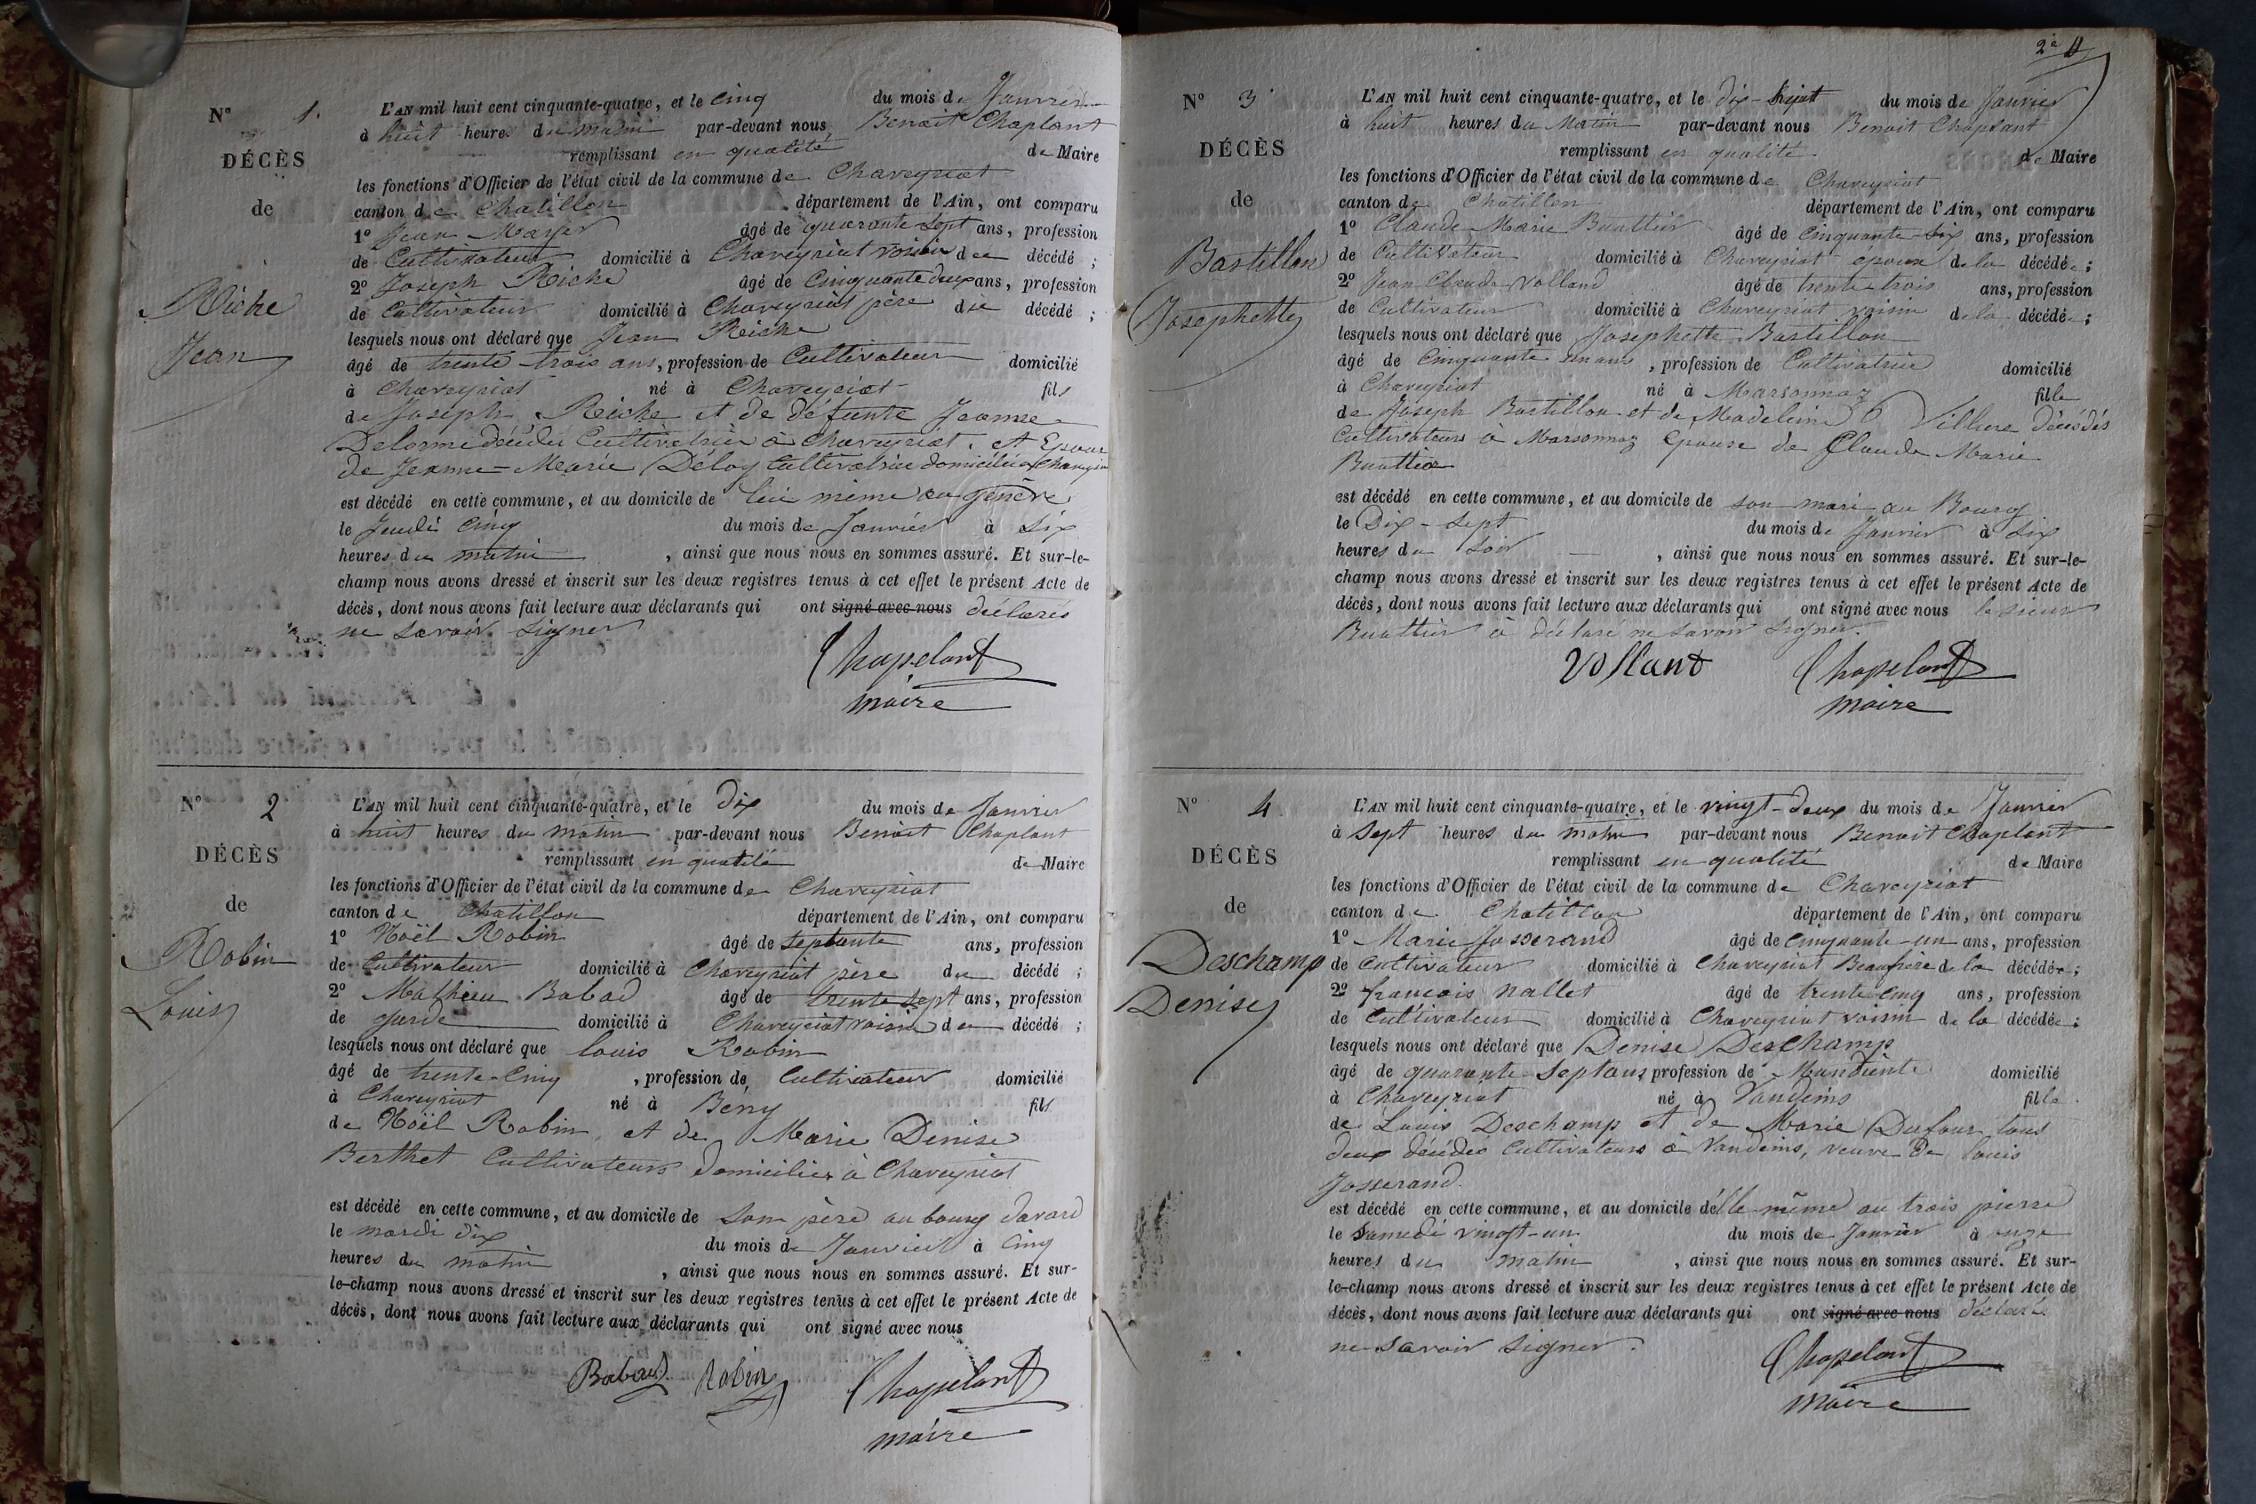 N° 1.
DÉCÈS
de
Riche
Jean
L'AN mil huit cent cinquante-quatre, et le cinq du mois de Janvier
à huit heures du matin par-devant nous, Benoit Chaplant
remplissant en qualité de Maire
les fonctions d'Officier de l'état civil de la commune de Chaveyriat
canton de Chatillon département de l'Ain, ont comparu
1° Jean Mayer âgé de quarante sept ans, profession
de Cultivateur domicilié à Chaveyriat voisin du décédé ;
2° Joseph Riche âgé de Cinquante deux ans, profession
de Cultivateur domicilié à Chaveyriat père du décédé ;
lesquels nous ont déclaré que Jean Riche
âgé de trente trois ans, profession de Cultivateur domicilié
à Chaveyriat né à Chaveyriat fils
de Joseph Riche et de défunte Jeanne
Delorme décédée Cultivatrice à Chaveyriat. et Epoux
de Jeanne-Marie Déloy Cultivatrice domiciliée à
est décédé en cette commune, et au domicile de lui même au genève
le Jeudi Cinq du mois de Janvier à Six
heures du matin , ainsi que nous nous en sommes assuré. Et sur-le-
champ nous avons dressé et inscrit sur les deux registres tenus à cet effet le présent Acte de
décès, dont nous avons fait lecture aux déclarants qui ont signé avec nous déclarés
ne savoir signer
Chapelant
maire
N° 2
DÉCÈS
de
Robin
Louis
L'AN mil huit cent cinquante-quatre, et le Dix du mois de Janvier
à huit heures du matin par-devant nous Benoit Chaplant
remplissant en qualité de Maire
les fonctions d'Officier de l'état civil de la commune de Chaveyriat
canton de Chatillon département de l'Ain, ont comparu
1° Noël Robin âgé de septante ans, profession
de Cultivateur domicilié à Chaveyriat père du décédé ;
2° Mathieu Babad âgé de trente sept ans, profession
de garde domicilié à Chaveyriat voisin du décédé ;
lesquels nous ont déclaré que louis Robin
âgé de trente-Cinq , profession de Cultivateur domicilié
à Chaveyriat né à Bény fils
de Noël Robin et de Marie Denise
Berthet Cultivateurs domiciliés à Chaveyriat
est décédé en cette commune, et au domicile de son père au bourg davard
le mardi dix du mois de Janvier à Cinq
heures du matin , ainsi que nous nous en sommes assuré. Et sur-
le-champ nous avons dressé et inscrit sur les deux registres tenus à cet effet le présent Acte de
décès, dont nous avons fait lecture aux déclarants qui ont signé avec nous
Babad Robin Chapelant
maire
2e
N° 3
DÉCÈS
de
Bastillon
Josephette
L'AN mil huit cent cinquante-quatre, et le dix-huit du mois de Janvier
à huit heures du Matin par-devant nous Benoit Chaplant
remplissant en qualité de Maire
les fonctions d'Officier de l'état civil de la commune de Chaveyriat
canton de Chatillon département de l'Ain, ont comparu
1° Claude Marie Buattier âgé de Cinquante-six ans, profession
de Cultivateur domicilié à Chaveyriat époux de la décédée ;
2° Jean Claude Volland âgé de trente-trois ans, profession
de Cultivateur domicilié à Chaveyriat voisin de la décédée ;
lesquels nous ont déclaré que Josephette Bastillon
âgé de Cinquante un ans , profession de Cultivatrice domicilié
à Chaveyriat né à Marsonnaz fille
de Joseph Bastillon et de Madeleine Villiere décédés
Cultivateurs à Marsonnaz Epouse de Claude Marie
Buattier
est décédé en cette commune, et au domicile de son mari au Bourg
le Dix-sept du mois de Janvier à six
heures du Soir , ainsi que nous nous en sommes assuré. Et sur-le-
champ nous avons dressé et inscrit sur les deux registres tenus à cet effet le présent Acte de
décès, dont nous avons fait lecture aux déclarants qui ont signé avec nous le sieur
Buattier à déclaré ne savoir signer.
Vollant Chapelant
maire
N° 4
DÉCÈS
de
Deschamp
Denise
L'AN mil huit cent cinquante-quatre, et le vingt-deux du mois de Janvier
à Sept heures du matin par-devant nous Benoit Chaplant
remplissant en qualité de Maire
les fonctions d'Officier de l'état civil de la commune de Chaveyriat
canton de Chatillon département de l'Ain, ont comparu
1° Marie Josserand âgé de cinquante-un ans, profession
de Cultivateur domicilié à Chaveyriat Beaufrère de la décédée ;
2° françois nallet âgé de trente cinq ans, profession
de Cultivateur domicilié à Chaveyriat voisin de la décédée ;
lesquels nous ont déclaré que Denise Deschamp
âgé de quarante Sept ans, profession de Mandiente domicilié
à Chaveyriat né à Vandeins fille
de Louis Deschamp et de Marie Dufour tous
deux décédés Cultivateurs à Vandeins, veuve de louis
Josserand.
est décédé en cette commune, et au domicile d'elle même au trois pierre
le Samedi vingt-un du mois de Janvier à onze
heures du matin , ainsi que nous nous en sommes assuré. Et sur-
le-champ nous avons dressé et inscrit sur les deux registres tenus à cet effet le présent Acte de
décès, dont nous avons fait lecture aux déclarants qui ont signé avec nous déclaré
ne savoir signer.
Chapelant
maire